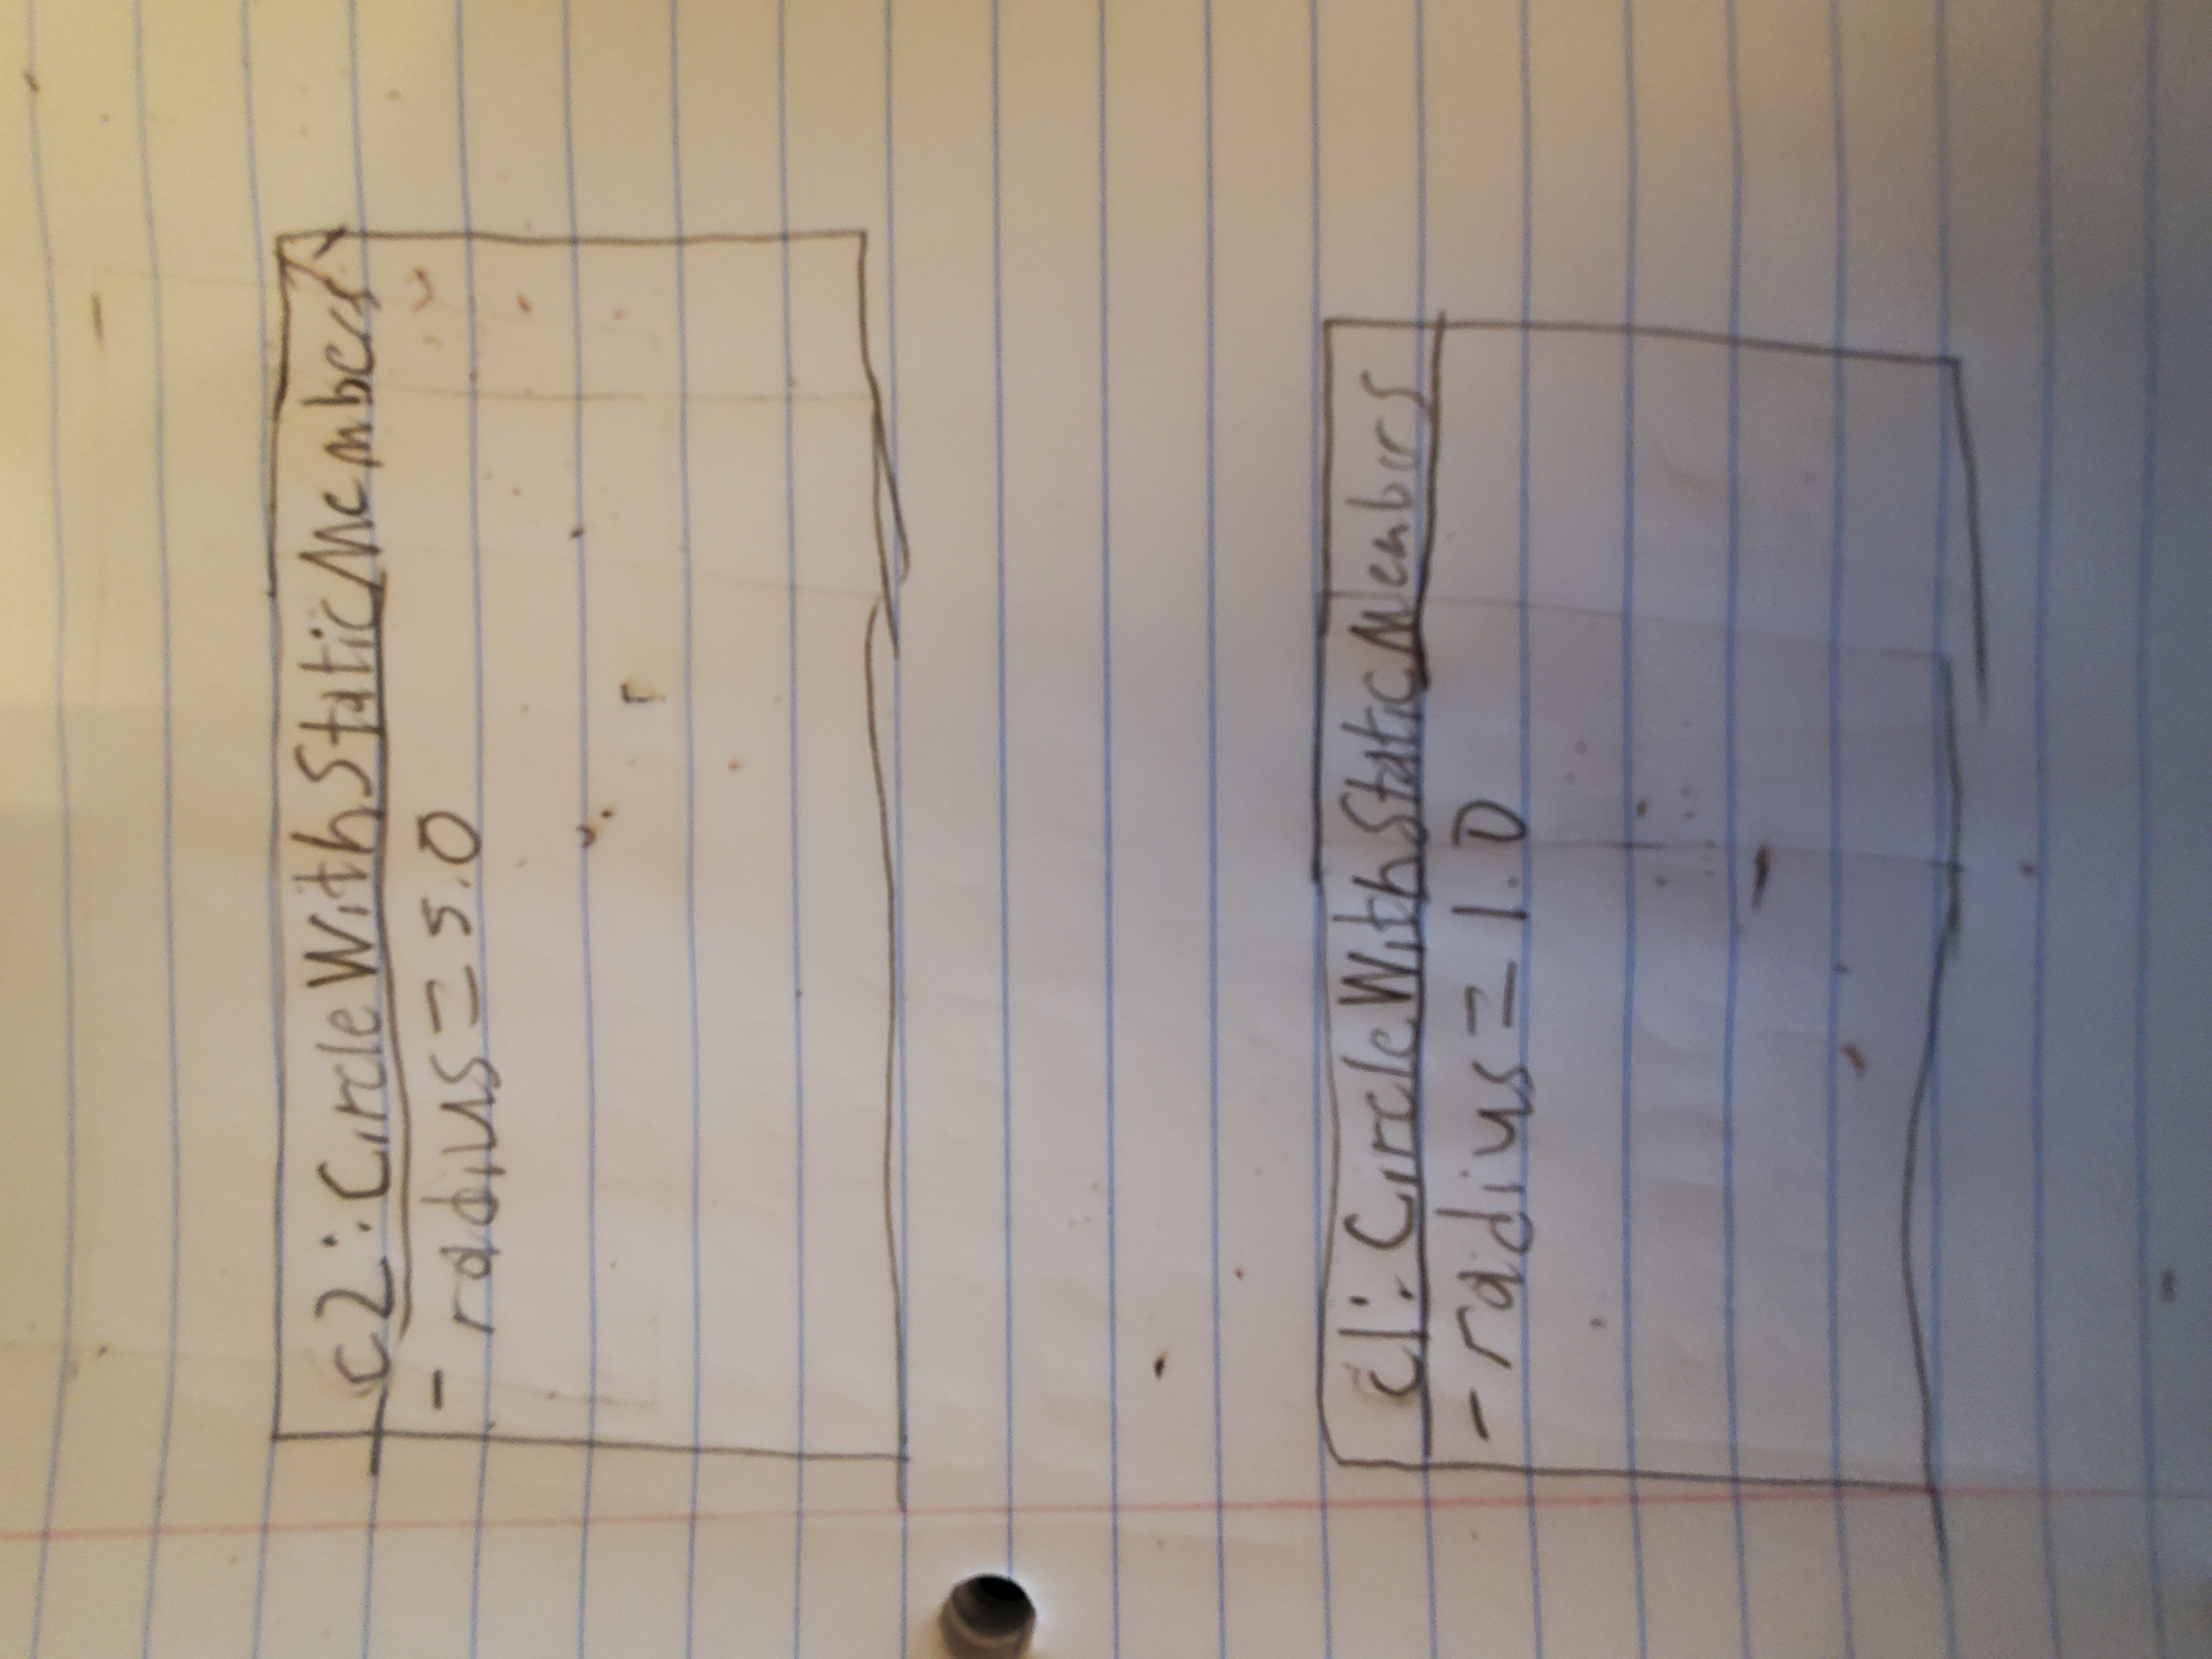 c2:CircleWithStaticMembers
- radius=5.0
c1:CircleWithStaticMembers
-radius=1.0